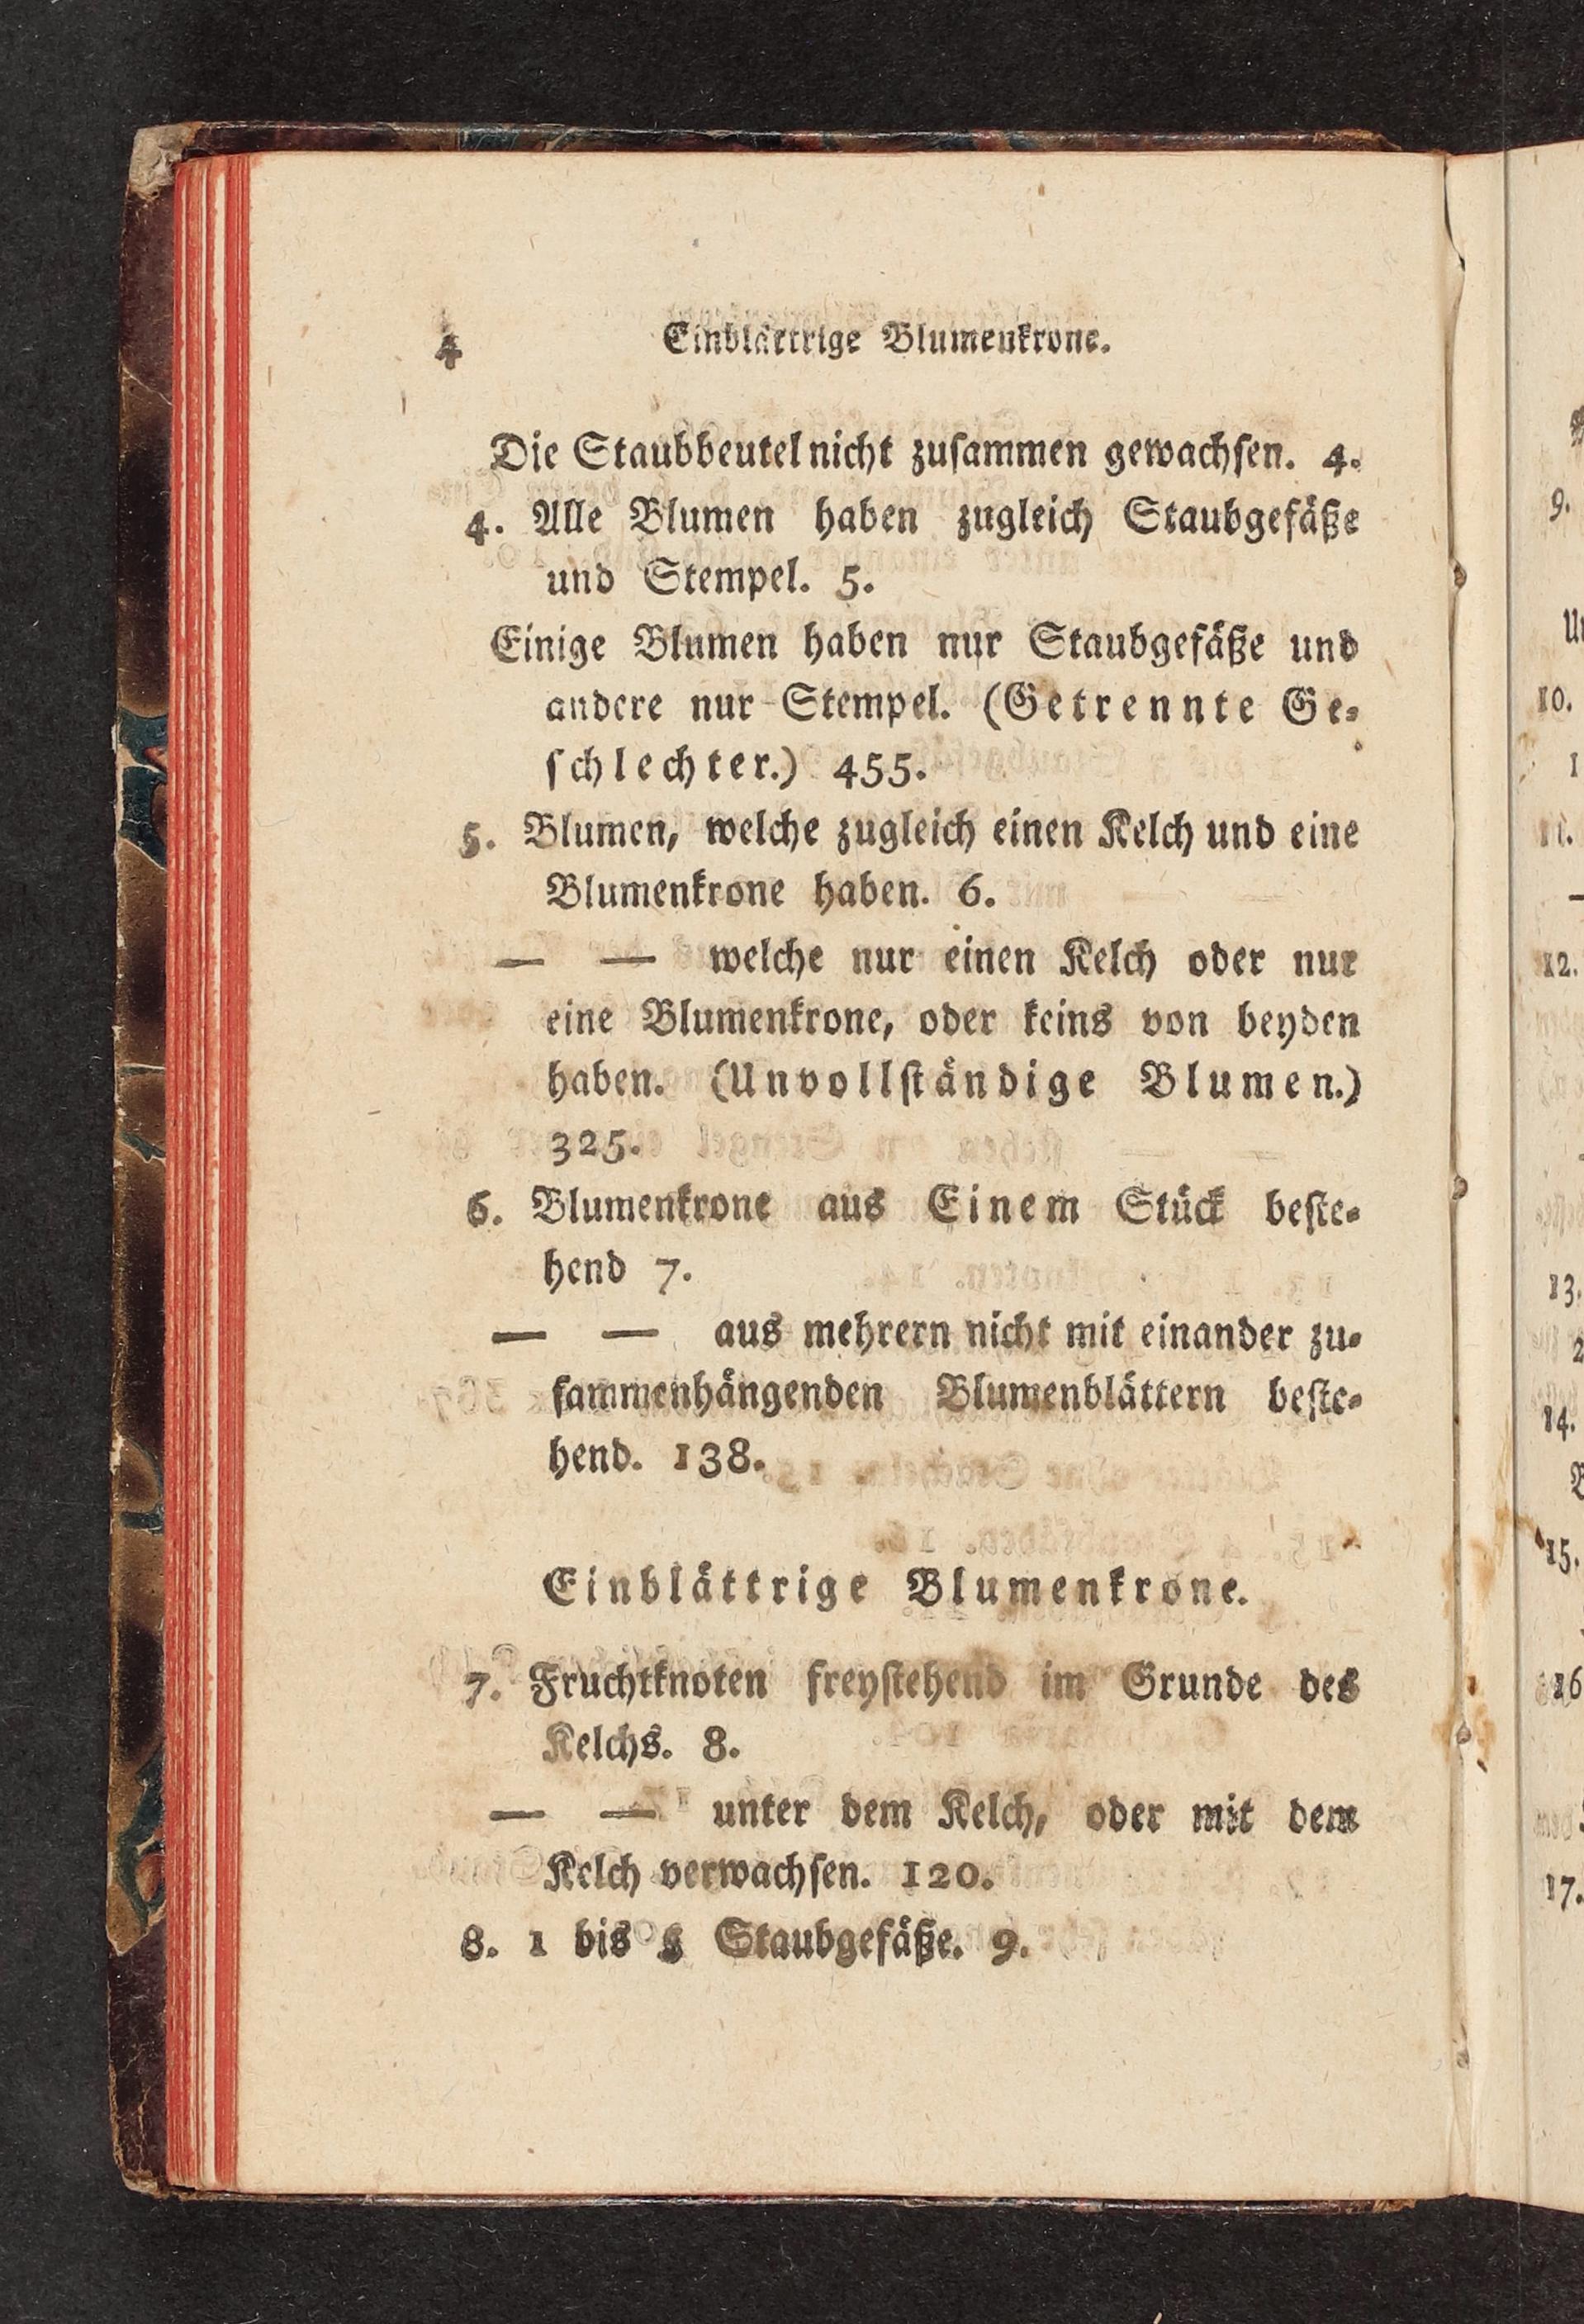 4 Einblättrige Blumenkrone.
Die Staubbeutel nicht zuſammen gewachſen. 4.
4. Alle Blumen haben zugleich Staubgefäße
und Stempel. 5.
Einige Blumen haben nur Staubgefäße und
andere nur Stempel. (Getrennte Ge-
ſchlechter.) 455.
5. Blumen, welche zugleich einen Kelch und eine
Blumenkrone haben. 6.
— — welche nur einen Kelch oder nur
eine Blumenkrone, oder keins von beyden
haben. (Unvollſtändige Blumen.)
325.
6. Blumenkrone aus Einem Stück beſte-
hend 7.
— — aus mehrern nicht mit einander zu-
ſammenhängenden Blumenblättern beſte-
hend. 138.
Einblättrige Blumenkrone.
7. Fruchtknoten freyſtehend im Grunde des
Kelchs. 8.
— — unter dem Kelch, oder mit dem
Kelch verwachſen. 120.
8. 1 bis Staubgefäße. 9.
9.
10.
11.
12.
13.
14.
15.
16
17.